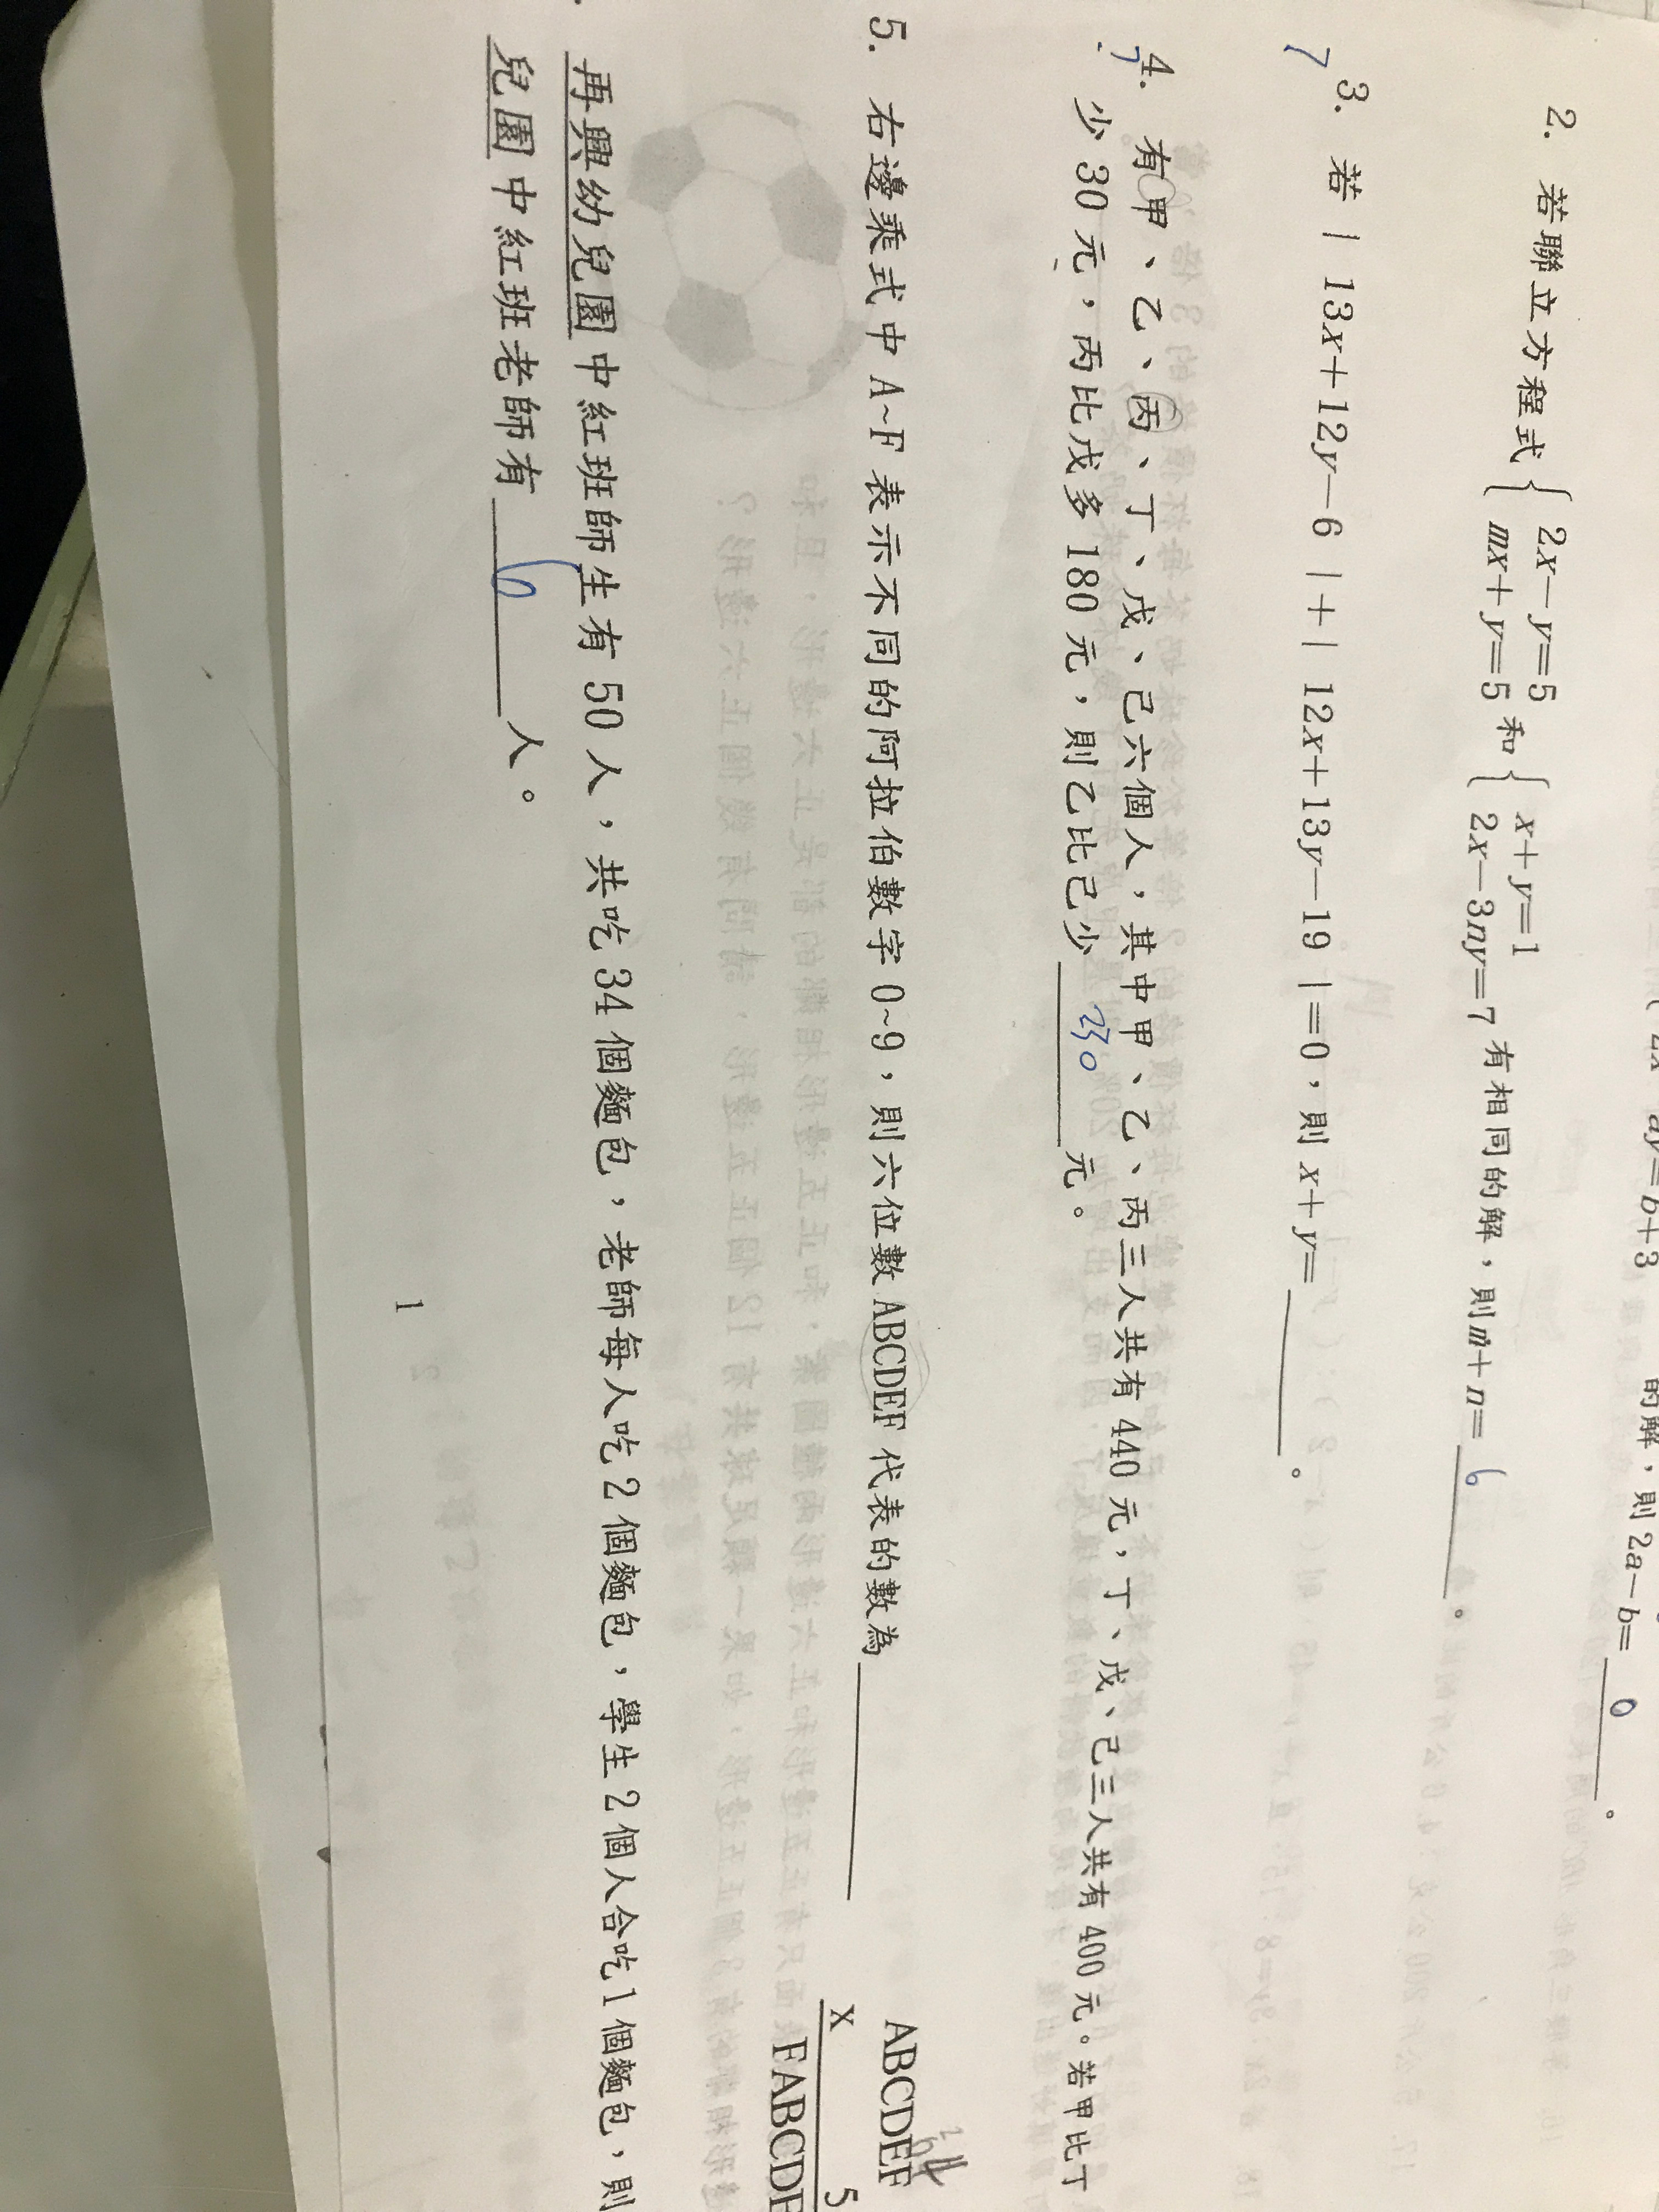 ay=b+3 的解，則 2a-b= 0 。
2. 若聯立方程式{2x-y=5 mx+y=5 和{x+y=1 2x-3ny=7 有相同的解，則m+n= 6 。
7
3. 若｜13x+12y-6｜+｜12x+13y-19｜=0，則 x+y= 。
4. 有甲、乙、丙、丁、戊、己六個人，其中甲、乙、丙三人共有 440 元，丁、戊、己三人共有 400 元。若甲比丁
少 30 元，丙比戊多 180 元，則乙比己少 230 元。
5. 右邊乘式中 A~F 表示不同的阿拉伯數字 0~9，則六位數 ABCDEF 代表的數為
ABCDEF
x 5
FABCDE
再興幼兒園中紅班師生有 50 人，共吃 34 個麵包，老師每人吃 2 個麵包，學生 2 個人合吃 1 個麵包，則
兒園中紅班老師有 6 人。
1